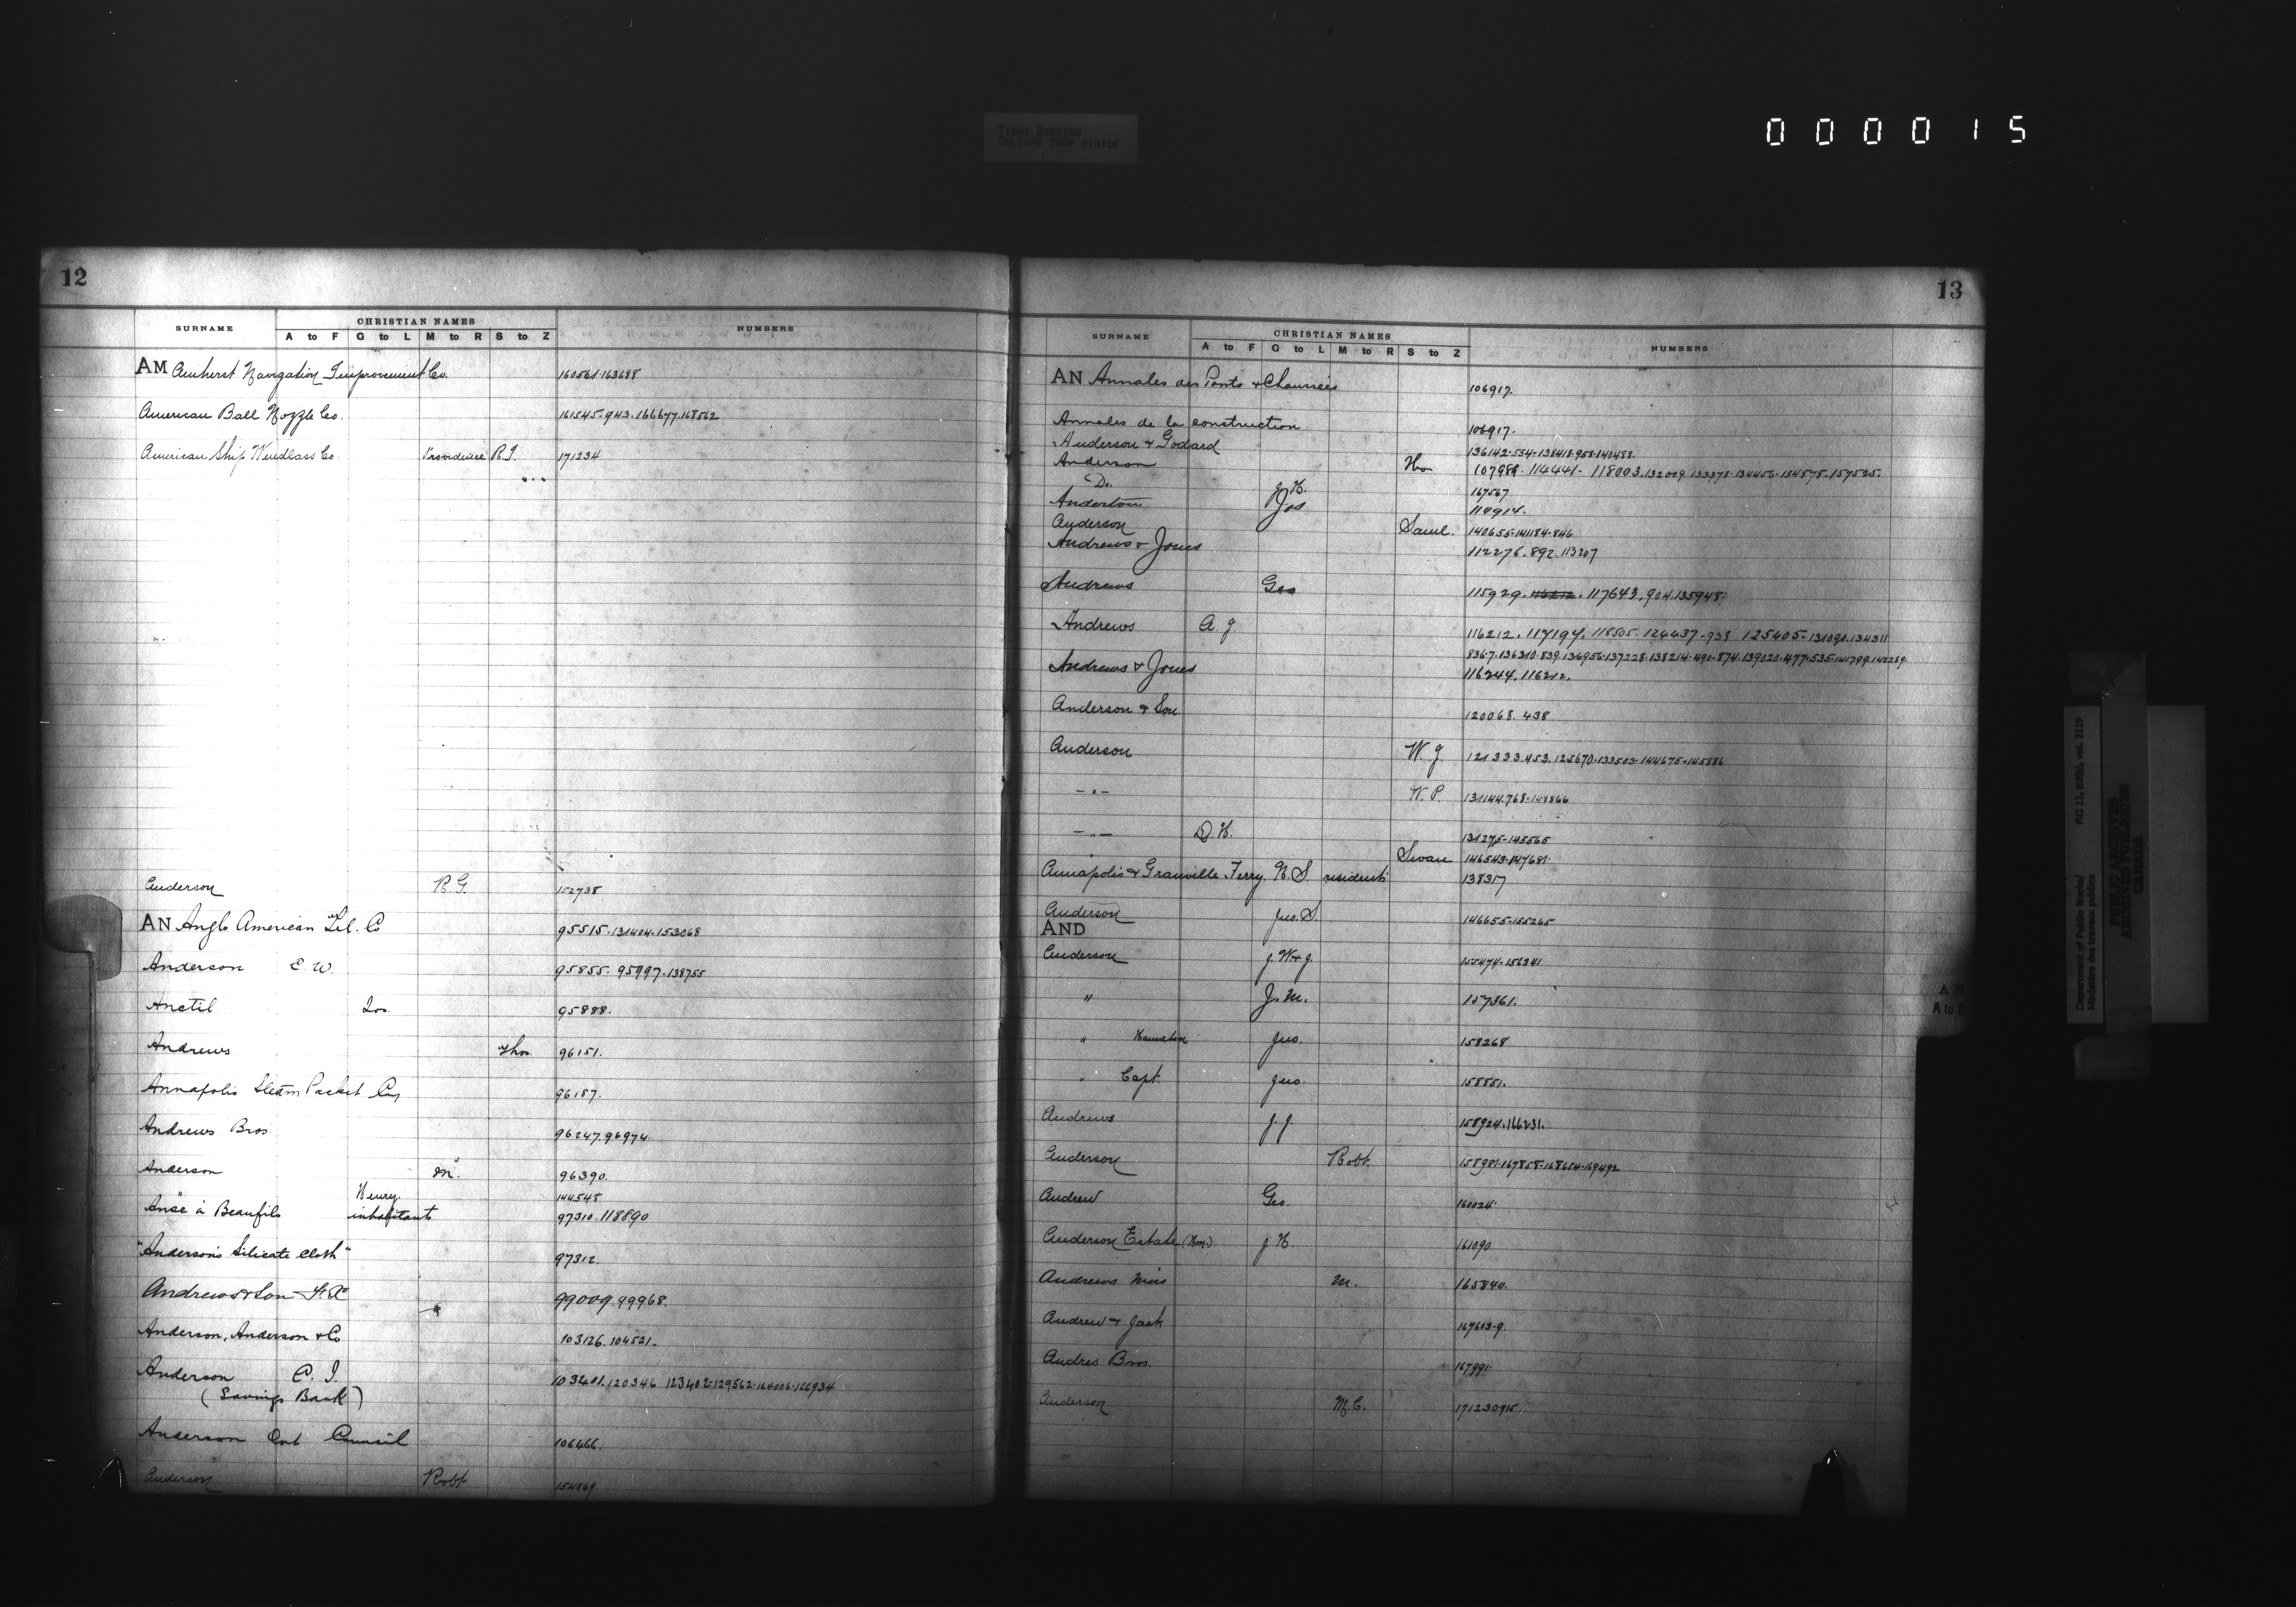 TIGHT BINDING
RELIURE TROP RIGIDE
000015
12
SURNAME CHRISTIAN NAMES NUMBERS
A to F G to L M to R S to Z
AM Amherst Navigation Improvement Co. 160561.163688
American Ball Nozzle Co. 161545-943.166677.168562
American Ship Windlass Co. Providence R.I. 171234
Anderson R.G. 152738
AN Anglo American Tel. Co 95515.131404.153068
Anderson E. W. 95855. 95997.138755
Anctil Jos. 95888.
Andrews Thos. 96151.
Annapolis Steam Packet Coy 96187.
Andrews Bros 96247.96974
Anderson M. 96390.
Henry. 144548
Anse à Beaufils inhabitants 97310.118890
"Anderson's Silicate Cloth" 97312.
Andrews & Son 99009.99968.
Anderson, Anderson & Co 103126.104521.
Anderson C. I. 103401.120346 123402.129562.164006.166934
(Savings Bank)
Anderson Ont Council 106466.
Anderson Robt 154069
13
SURNAME CHRISTIAN NAMES NUMBERS
A to F G to L M to R S to Z
AN Annales des Ponts & Chaussées 106917.
Annales de la construction 106917.
Anderson & Godard 136142-554-138418.958.140488.
Anderson 107989. 114441- 118003.132009.133378.134456.154575.157525.
Do. J. H. 167567
Anderton Jos 114914.
Anderson Saml. 140655-141184-846
Andrews & Jones 112276.892.113207
Andrews Geo 115929. 116212. 117643.904.135948.
Andrews A. J. 116212. 117197. 118505. 124437-938 125405-131090.134311
836.7.136310.839.136956.137228.138214.490-874.139020.477.535.141799.142289.
Andrews & Jones 116244.116212.
Anderson & Son. 120068. 438
Anderson W. J. 121333.453.125670.133503.144675-145886
-"- W. P. 131144.768.148866
-"- D. H. 131275-145565
Swan 146543-147681.
Annapolis & Granville Ferry. N.S. residents 138317
Anderson Jno. S. 146655-155265
AND
Anderson J. W & J. 155474-156341
" J. M. 157361.
" Hamilton Jno. 158268
" Capt. Jno. 158851.
Andrews J. J. 158924.166231.
Anderson Robt. 158981.167858-168654-169492
Andrew Geo. 160024.
Anderson Estate (Hon.) J. H. 161090
Andrews Miss M. 165840.
Andrew & Jack 167613-9.
Andres Bros. 167991.
Anderson M. C. 171230.915
AN
A to D
Department of Public Works/ RG 11, B2(b), vol. 2119
Ministère des travaux publics
PUBLIC ARCHIVES
ARCHIVES PUBLIQUES
CANADA